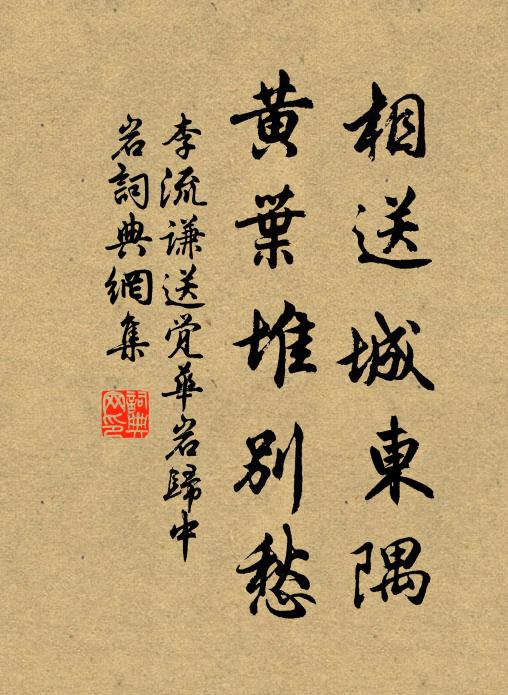 相送城東隅
黃葉堆別愁
李流谦送觉華岩歸中
岩詞典網集
詞典
网印